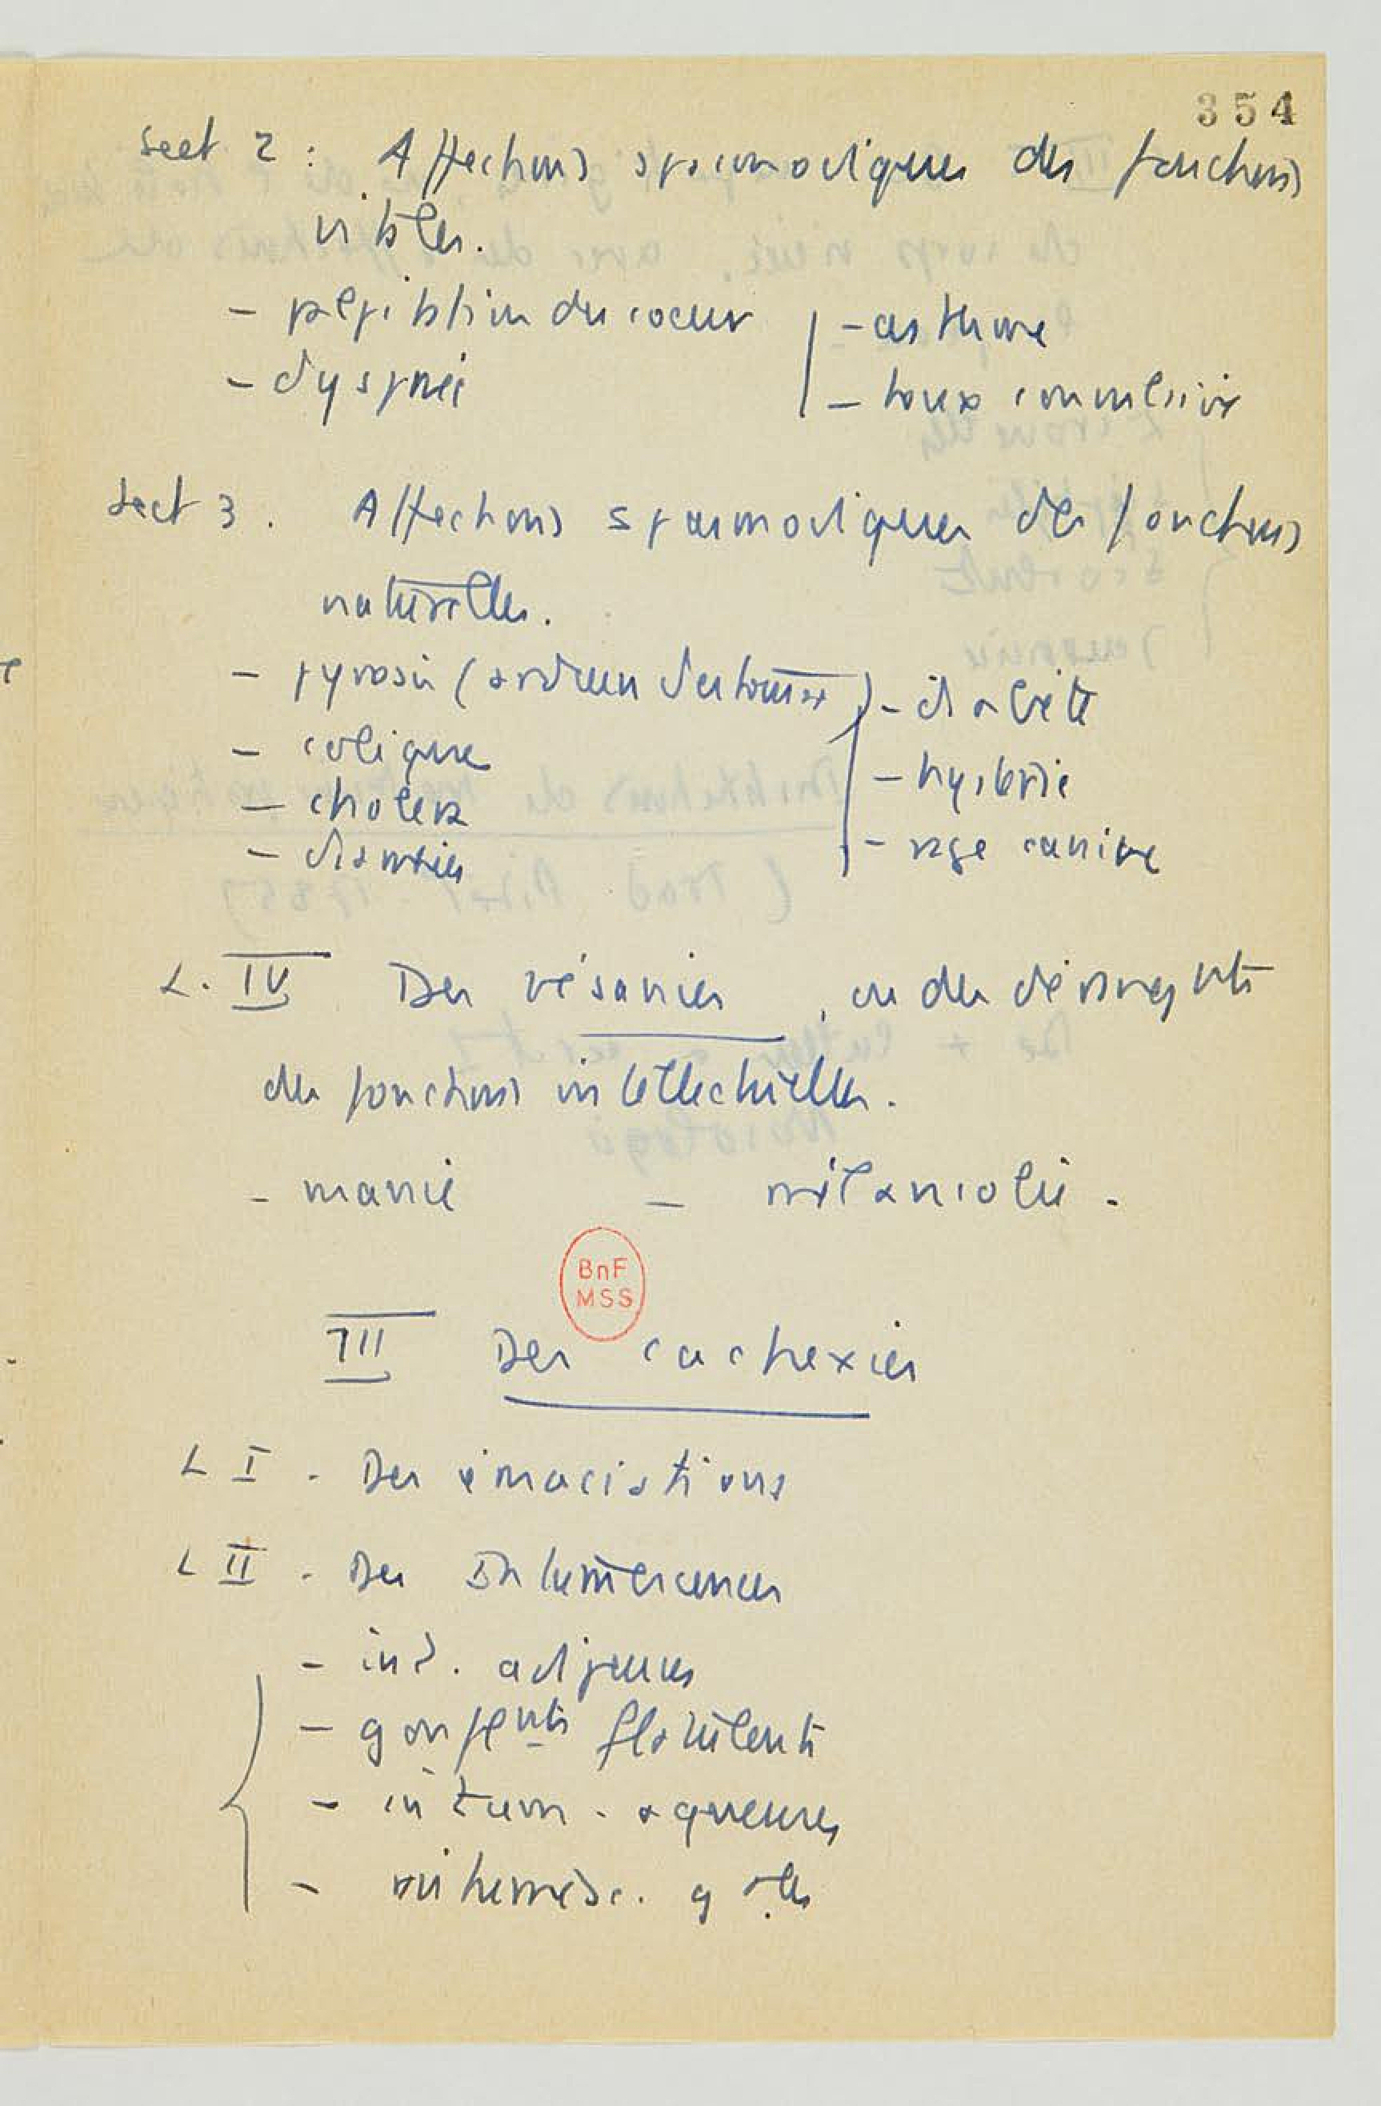 354
Sect 2 : Affections spasmodiques des fonctions
vitales.
- palpitation du coeur
- dyspnée
- asthme
- toux convulsive
Sect 3. Affections spasmodiques des fonctions
naturelles.
- pyrosis (ardeur d'estomac)
- colique
- cholera
- diarrhée
- diabète
- hystérie
- rage canine
L. IV Des vésanies, ou des dérangts
des fonctions intellectuelles.
- manie - mélancolie.
BnF
MSS
III Des cachexies
L I - Des émaciations
L II - Des Intumescences
- int. adipeuses
- gonflemts flatulents
- intum. aqueuses
- intumesc. gales